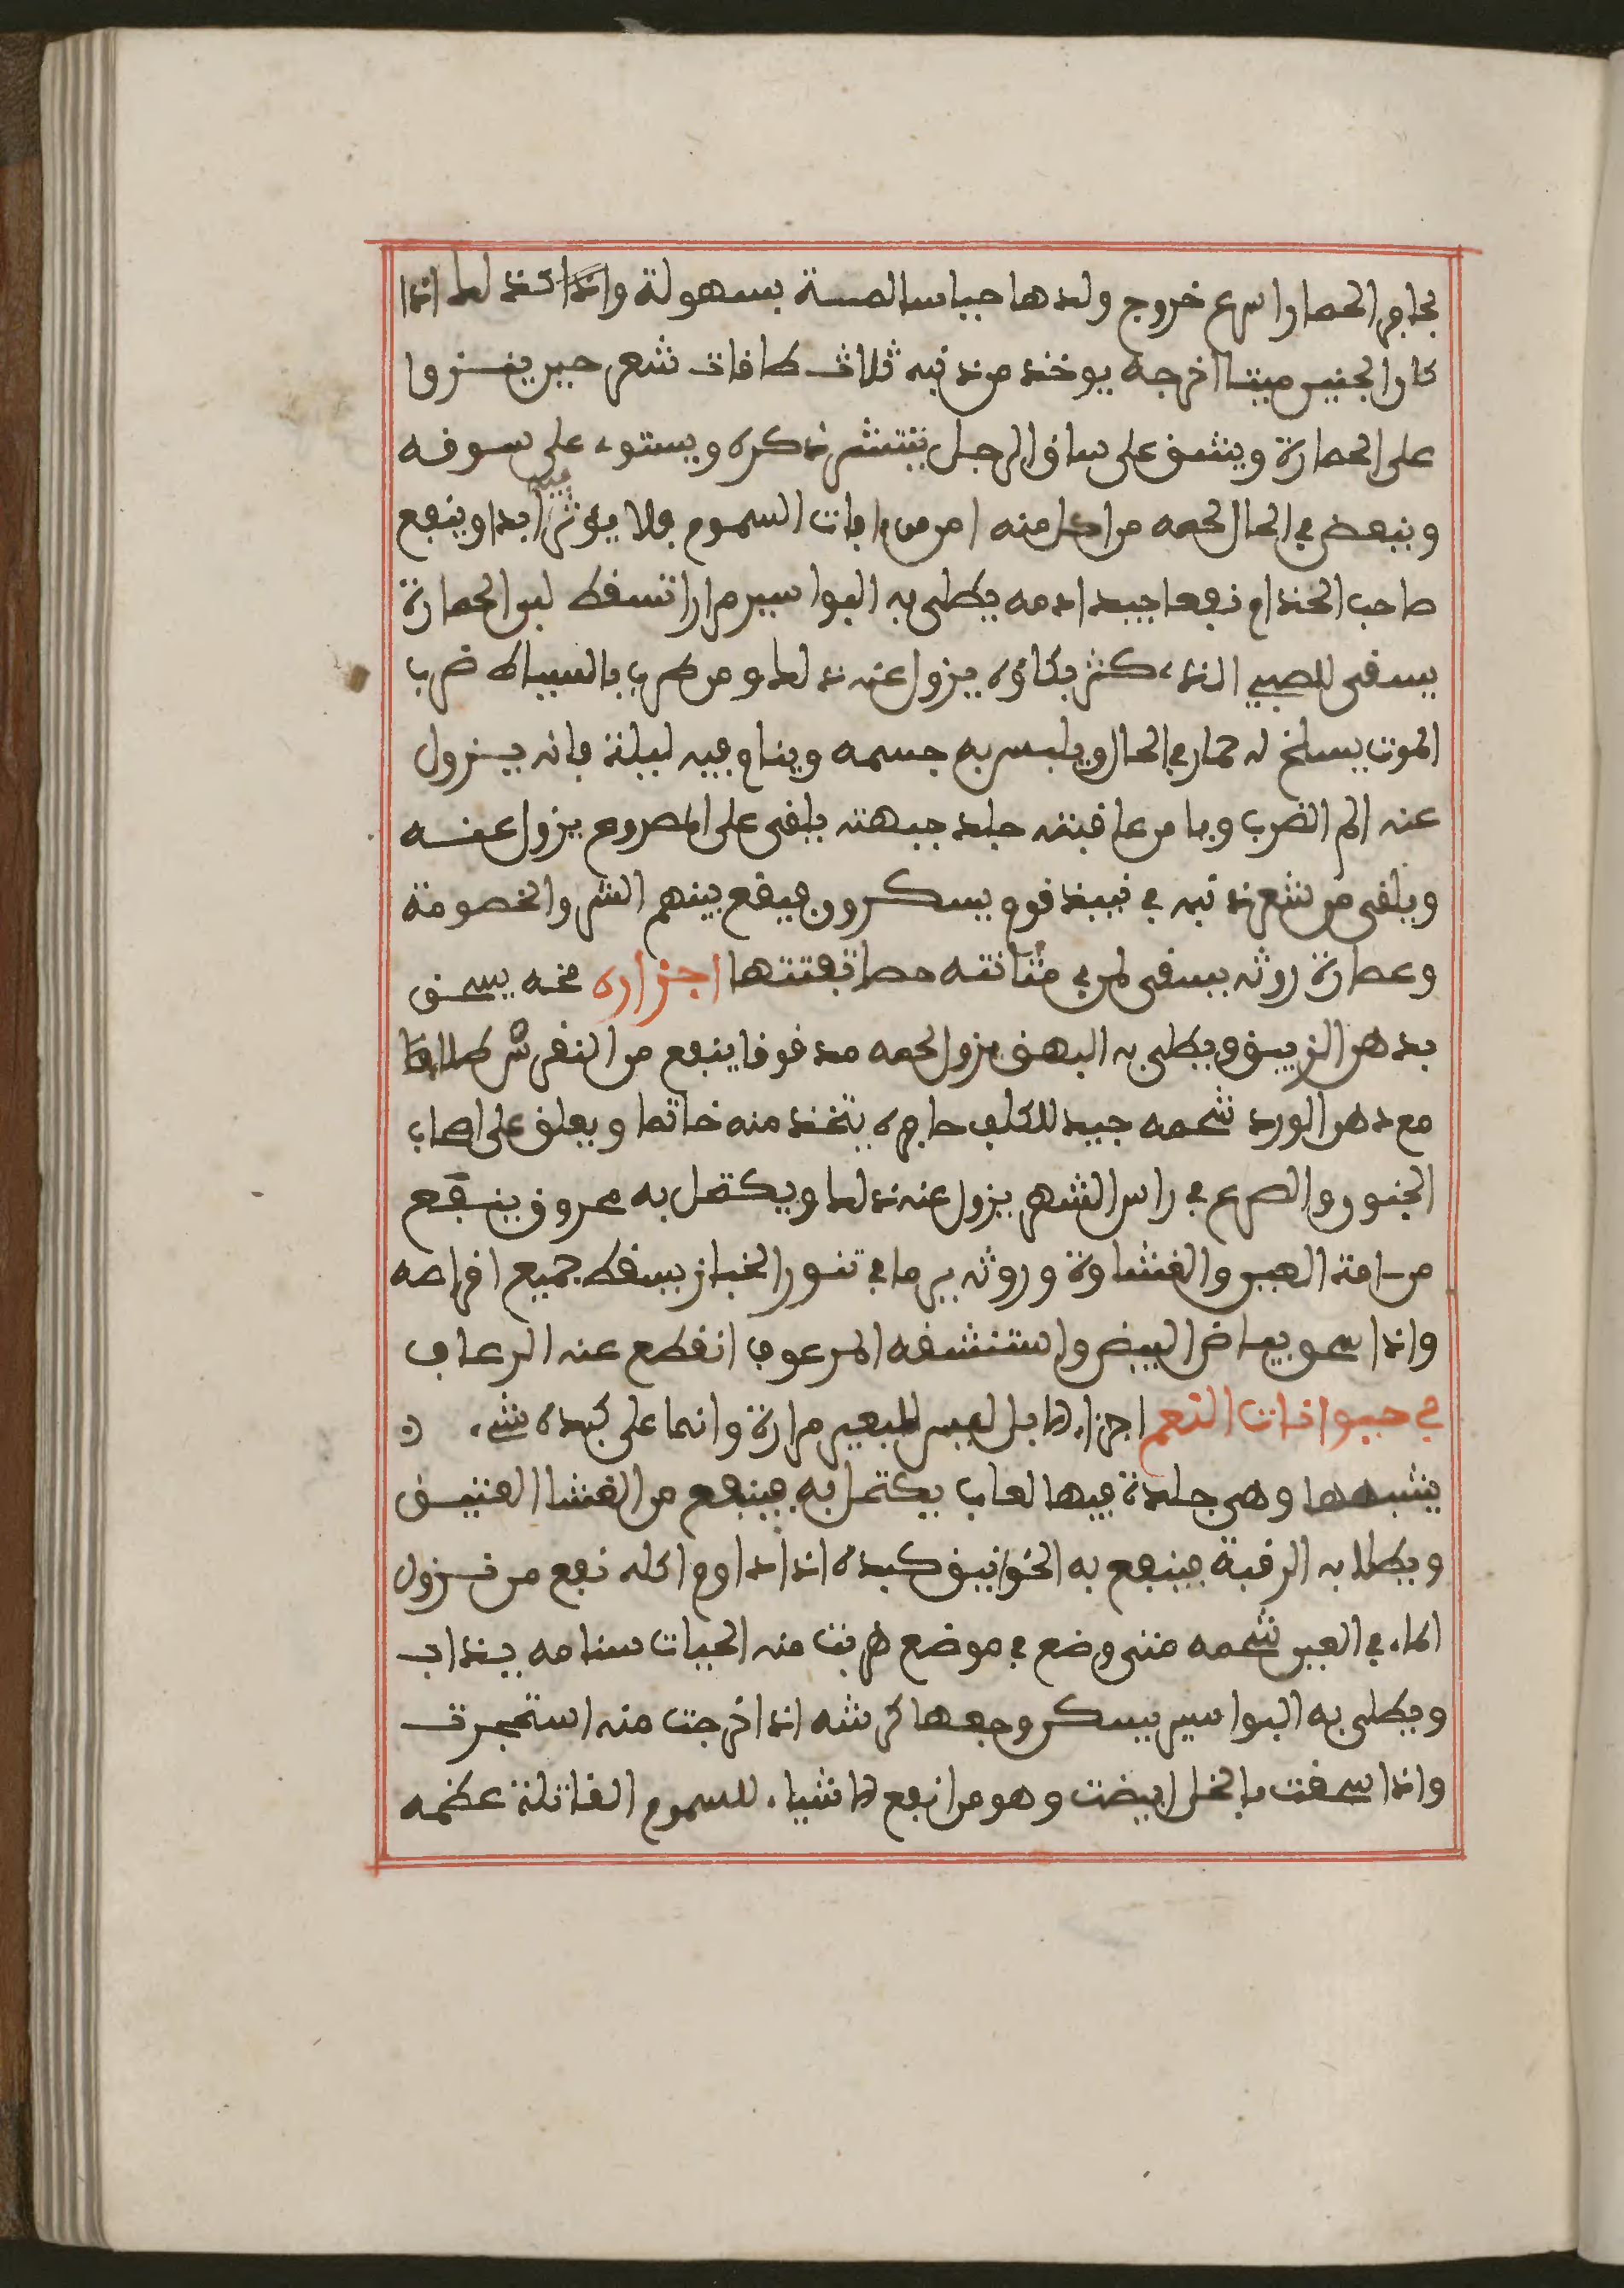 بحافر الحمار اسرع خروج ولدها حيا سالمة بسهولة وكذلك اذا
كان الجنين ميتا اخرجه يوخذ من ذنبه ثلاث طاقات شعر حين ينزوا
على الحمارة ويشق على ساق الرجل ينتشر ذكره ويستوى على سوقه
وينهض في الحال لحمه من اكل منه امن من افات السموم فلا يؤثر فيه ابدا وينفع
صاحب الجذام نفعا جيدا دمه يطلى به البواسير مرارا تسقط لبن الحمارة
يسقى للصبي الذى كثر بكاؤه يزول عنه ذلك ومن ضرب بالسياط ضرب
الموت يسلخ له حمار في الحال ويلبس به جسمه وينام فيه ليلة فانه يزول
عنه الم الضرب ويامن عاقبته جلد جبهته يلقى على المصروع يزول عنه
ويلقى من شعر ذنبه في نبيذ قوم يسكرون فيقع بينهم الشر والخصومة
وعصارة روثه يسقى لمن في مثانته حصا تفتتها اجزاره مخه يسحق
بدهن الزيبق ويطلى به البهق يزول لحمه مدقوقا ينفع من النقرس طلا
مع دهن الورد شحمه جيد للكلف حافره يتخذ منه خاتما ويعلق على صاحب
الجنون والصرع في راس الشهر يزول عنه ذلك ويكتحل به محروق ينفع
من العين والغشاوة وروثه يرما في تنور الخباز يسقط جميع اقراصه
واذا سحق ببياض البيض واستنشقه المرعوف انقطع عنه الرعاف
في حيوانات النعم اجزاء الابل ليس للبعير مرارة وانما على كبده شيء
يشبهها وهي جلدة فيها لعاب يكتحل به فينفع من الغشا العتيق
ويطلا به الرقبة فينفع به الخوانيق كبده اذا داوم اكله نفع من نزول
الماء في العين شحمه متى وضع في موضع هربت منه الحيات سنامه يذاب
ويطلى به البواسير يسكن وجعها كرشه اذا خرجت منه استحجرت
واذا سحقت بالخل ابيضت وهو من انفع الاشياء للسموم القاتلة عظمه